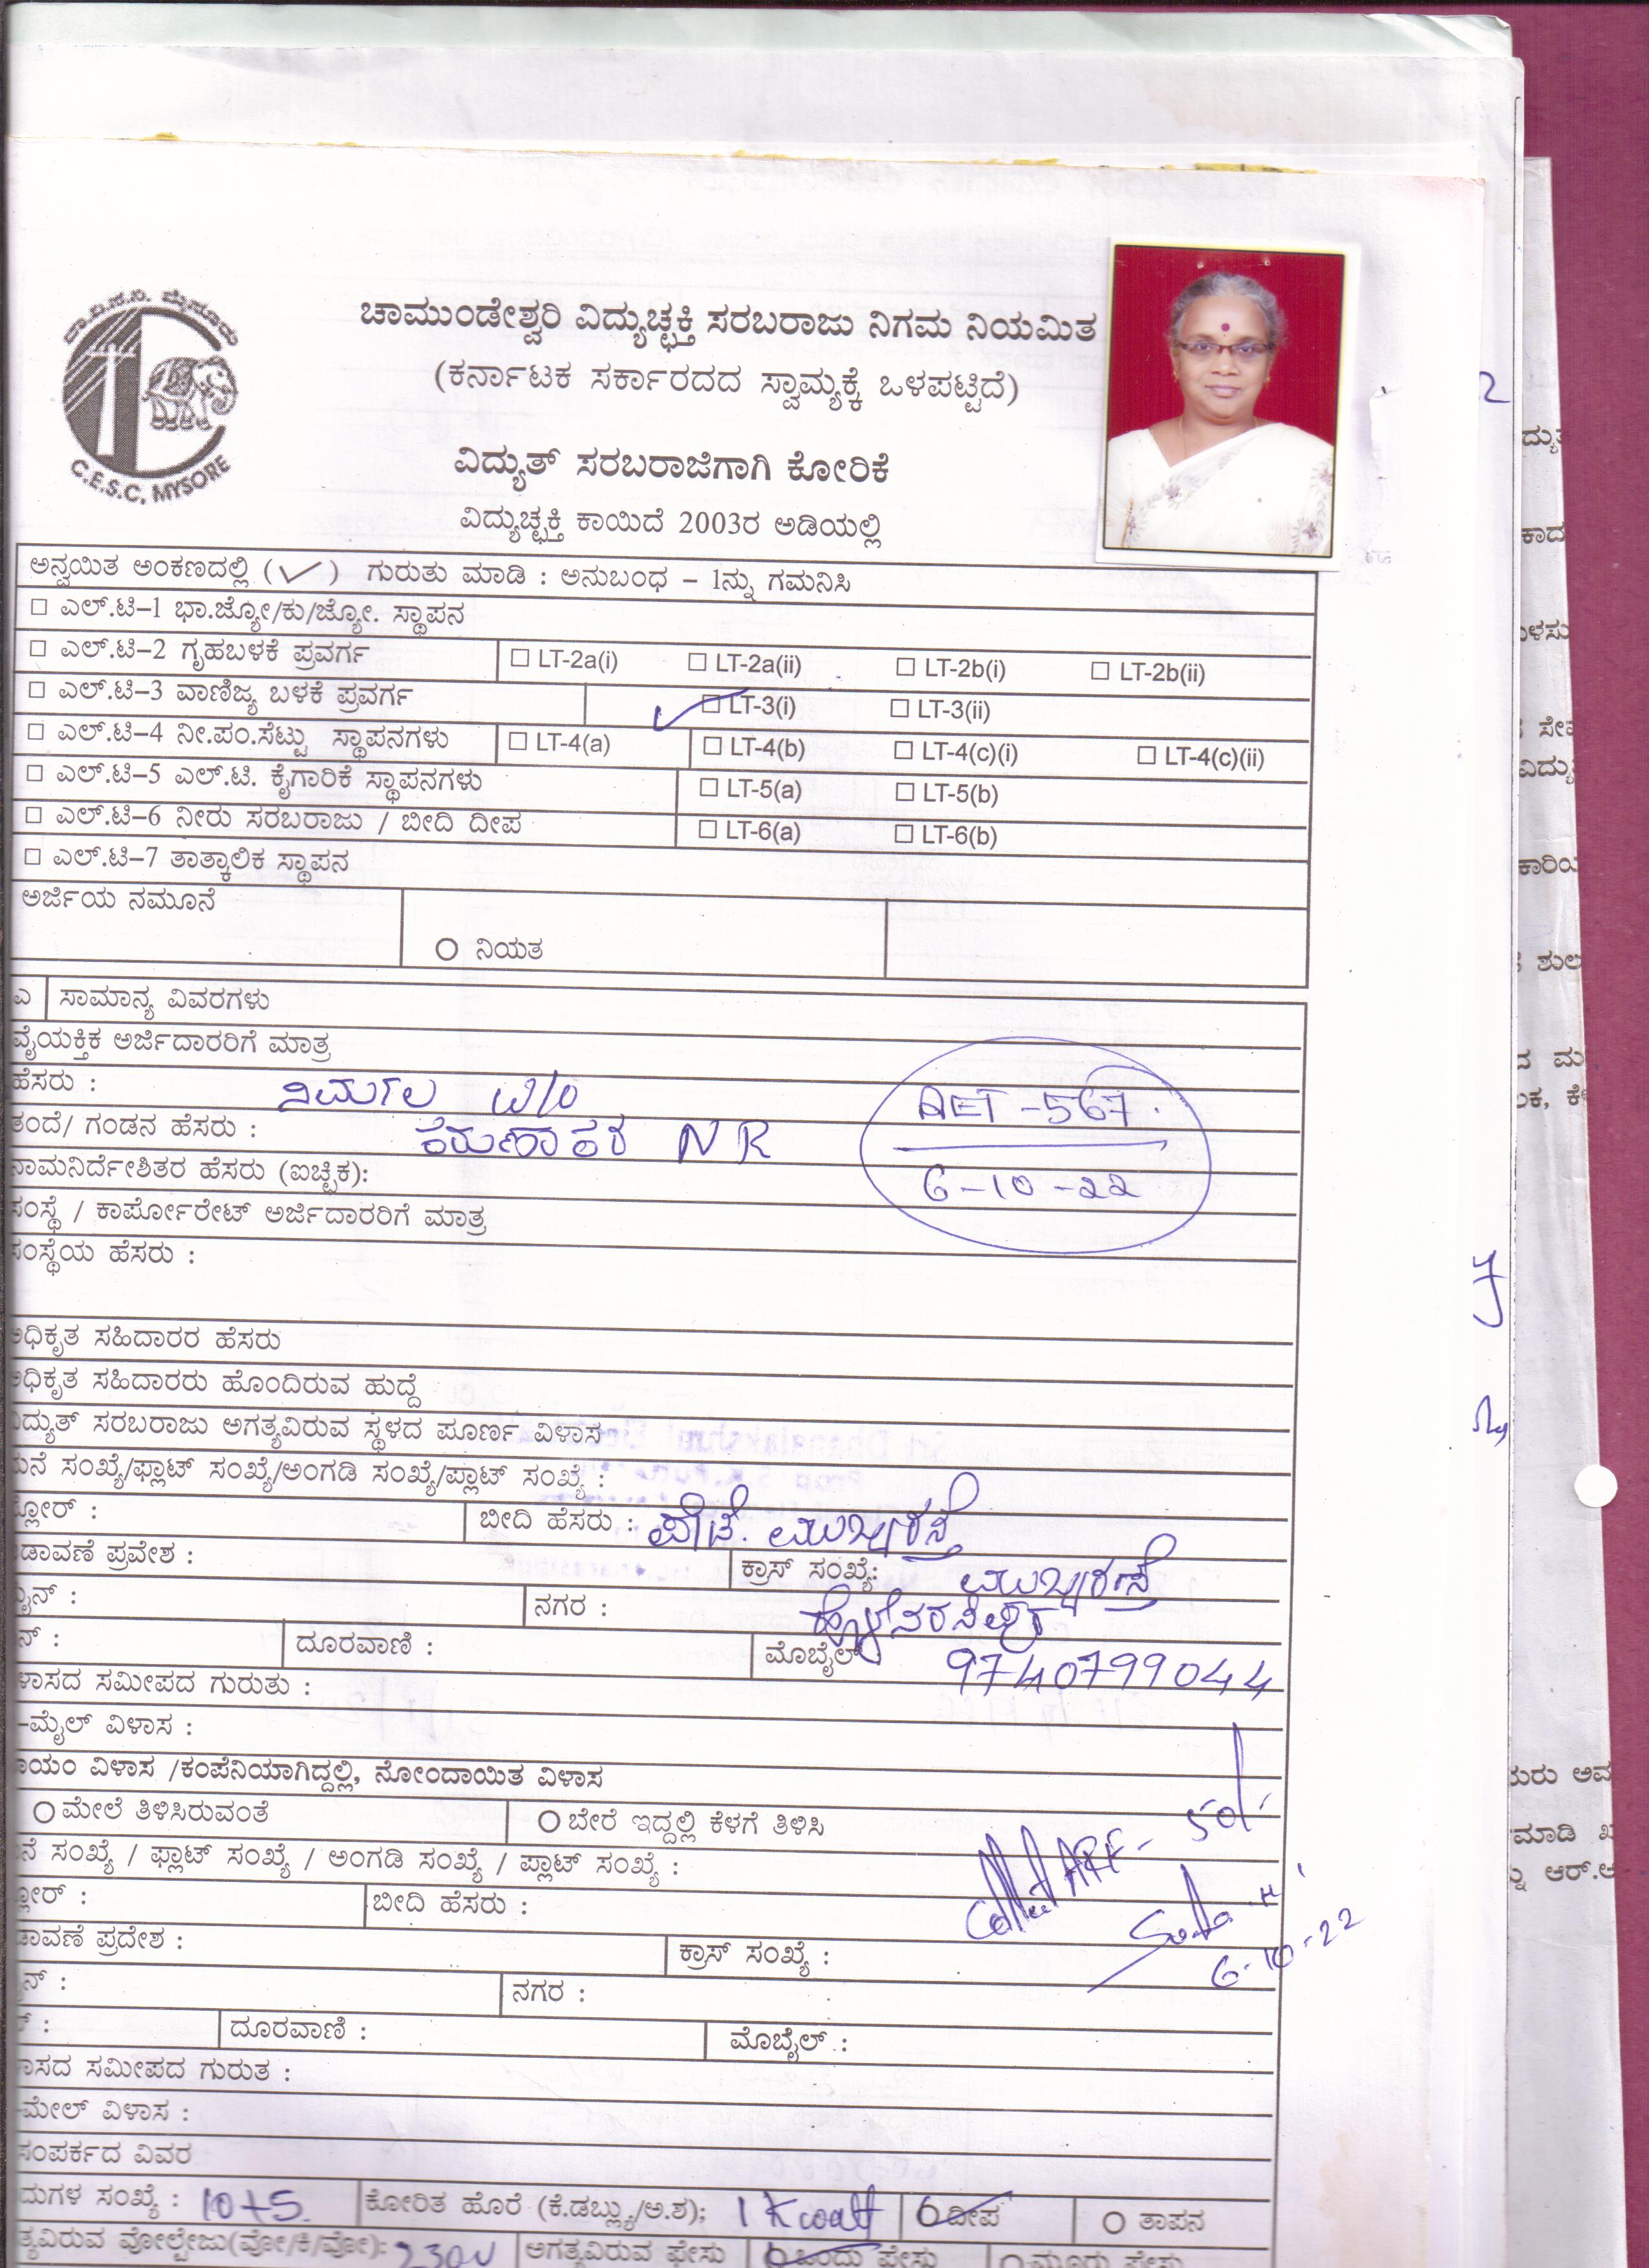 ಚಾ.ವಿ.ಸ.ನಿ. ಮೈಸೂರು
C.E.S.C. MYSORE
ಚಾಮುಂಡೇಶ್ವರಿ ವಿದ್ಯುಚ್ಛಕ್ತಿ ಸರಬರಾಜು ನಿಗಮ ನಿಯಮಿತ
(ಕರ್ನಾಟಕ ಸರ್ಕಾರದದ ಸ್ವಾಮ್ಯಕ್ಕೆ ಒಳಪಟ್ಟಿದೆ)
ವಿದ್ಯುತ್ ಸರಬರಾಜಿಗಾಗಿ ಕೋರಿಕೆ
ವಿದ್ಯುಚ್ಛಕ್ತಿ ಕಾಯಿದೆ 2003ರ ಅಡಿಯಲ್ಲಿ
ಅನ್ವಯಿತ ಅಂಕಣದಲ್ಲಿ (✓) ಗುರುತು ಮಾಡಿ : ಅನುಬಂಧ – 1ನ್ನು ಗಮನಿಸಿ
□ ಎಲ್.ಟಿ–1 ಭಾ.ಜ್ಯೋ/ಕು/ಜ್ಯೋ. ಸ್ಥಾಪನ
□ ಎಲ್.ಟಿ–2 ಗೃಹಬಳಕೆ ಪ್ರವರ್ಗ □ LT-2a(i) □ LT-2a(ii) □ LT-2b(i) □ LT-2b(ii)
□ ಎಲ್.ಟಿ–3 ವಾಣಿಜ್ಯ ಬಳಕೆ ಪ್ರವರ್ಗ ✓ □ LT-3(i) □ LT-3(ii)
□ ಎಲ್.ಟಿ–4 ನೀ.ಪಂ.ಸೆಟ್ಟು ಸ್ಥಾಪನಗಳು □ LT-4(a) □ LT-4(b) □ LT-4(c)(i) □ LT-4(c)(ii)
□ ಎಲ್.ಟಿ–5 ಎಲ್.ಟಿ. ಕೈಗಾರಿಕೆ ಸ್ಥಾಪನಗಳು □ LT-5(a) □ LT-5(b)
□ ಎಲ್.ಟಿ–6 ನೀರು ಸರಬರಾಜು / ಬೀದಿ ದೀಪ □ LT-6(a) □ LT-6(b)
□ ಎಲ್.ಟಿ–7 ತಾತ್ಕಾಲಿಕ ಸ್ಥಾಪನ
ಅರ್ಜಿಯ ನಮೂನೆ
○ ನಿಯತ
ಎ ಸಾಮಾನ್ಯ ವಿವರಗಳು
ವೈಯಕ್ತಿಕ ಅರ್ಜಿದಾರರಿಗೆ ಮಾತ್ರ
ಹೆಸರು : ನಿರ್ಮಲ W/o
AET - 567.
ತಂದೆ/ ಗಂಡನ ಹೆಸರು : ಕರುಣಾಕರ N R
6-10-22
ನಾಮನಿರ್ದೇಶಿತರ ಹೆಸರು (ಐಚ್ಛಿಕ):
ಸಂಸ್ಥೆ / ಕಾರ್ಪೋರೇಟ್ ಅರ್ಜಿದಾರರಿಗೆ ಮಾತ್ರ
ಸಂಸ್ಥೆಯ ಹೆಸರು :
ಅಧಿಕೃತ ಸಹಿದಾರರ ಹೆಸರು
ಅಧಿಕೃತ ಸಹಿದಾರರು ಹೊಂದಿರುವ ಹುದ್ದೆ
ವಿದ್ಯುತ್ ಸರಬರಾಜು ಅಗತ್ಯವಿರುವ ಸ್ಥಳದ ಪೂರ್ಣ ವಿಳಾಸ
ಮನೆ ಸಂಖ್ಯೆ/ಫ್ಲಾಟ್ ಸಂಖ್ಯೆ/ಅಂಗಡಿ ಸಂಖ್ಯೆ/ಪ್ಲಾಟ್ ಸಂಖ್ಯೆ :
ಫ್ಲೋರ್ : ಬೀದಿ ಹೆಸರು : ಪೇಟೆ. ಮುಖ್ಯರಸ್ತೆ
ಡಾವಣೆ ಪ್ರವೇಶ : ಕ್ರಾಸ್ ಸಂಖ್ಯೆ: ಮುಖ್ಯರಸ್ತೆ
ನಗರ : ಹೊಳೆನರಸೀಪುರ
ದೂರವಾಣಿ : ಮೊಬೈಲ್ 9740799044
ಳಾಸದ ಸಮೀಪದ ಗುರುತು :
-ಮೈಲ್ ವಿಳಾಸ :
ಾಯಂ ವಿಳಾಸ /ಕಂಪೆನಿಯಾಗಿದ್ದಲ್ಲಿ, ನೋಂದಾಯಿತ ವಿಳಾಸ
○ ಮೇಲೆ ತಿಳಿಸಿರುವಂತೆ ○ ಬೇರೆ ಇದ್ದಲ್ಲಿ ಕೆಳಗೆ ತಿಳಿಸಿ
Collect ARF - 50/-
ನೆ ಸಂಖ್ಯೆ / ಫ್ಲಾಟ್ ಸಂಖ್ಯೆ / ಅಂಗಡಿ ಸಂಖ್ಯೆ / ಪ್ಲಾಟ್ ಸಂಖ್ಯೆ :
ಲೋರ್ : ಬೀದಿ ಹೆಸರು :
6-10-22
ಡಾವಣೆ ಪ್ರದೇಶ : ಕ್ರಾಸ್ ಸಂಖ್ಯೆ :
ನ್ : ನಗರ :
ದೂರವಾಣಿ : ಮೊಬೈಲ್ :
ಾಸದ ಸಮೀಪದ ಗುರುತ :
-ಮೇಲ್ ವಿಳಾಸ :
ಸಂಪರ್ಕದ ವಿವರ
ದುಗಳ ಸಂಖ್ಯೆ : 10+5 ಕೋರಿತ ಹೊರೆ (ಕೆ.ಡಬ್ಲ್ಯು/ಅ.ಶ); 1 Kwatt ○ ದೀಪ ○ ತಾಪನ
ತ್ಯವಿರುವ ವೋಲ್ಟೇಜು(ವೋ/ಕಿ/ವೋ): 230V ಅಗತ್ಯವಿರುವ ಫೇಸು ○ ಒಂದು ಫೇಸು ○ ಮೂರು ಫೇಸು